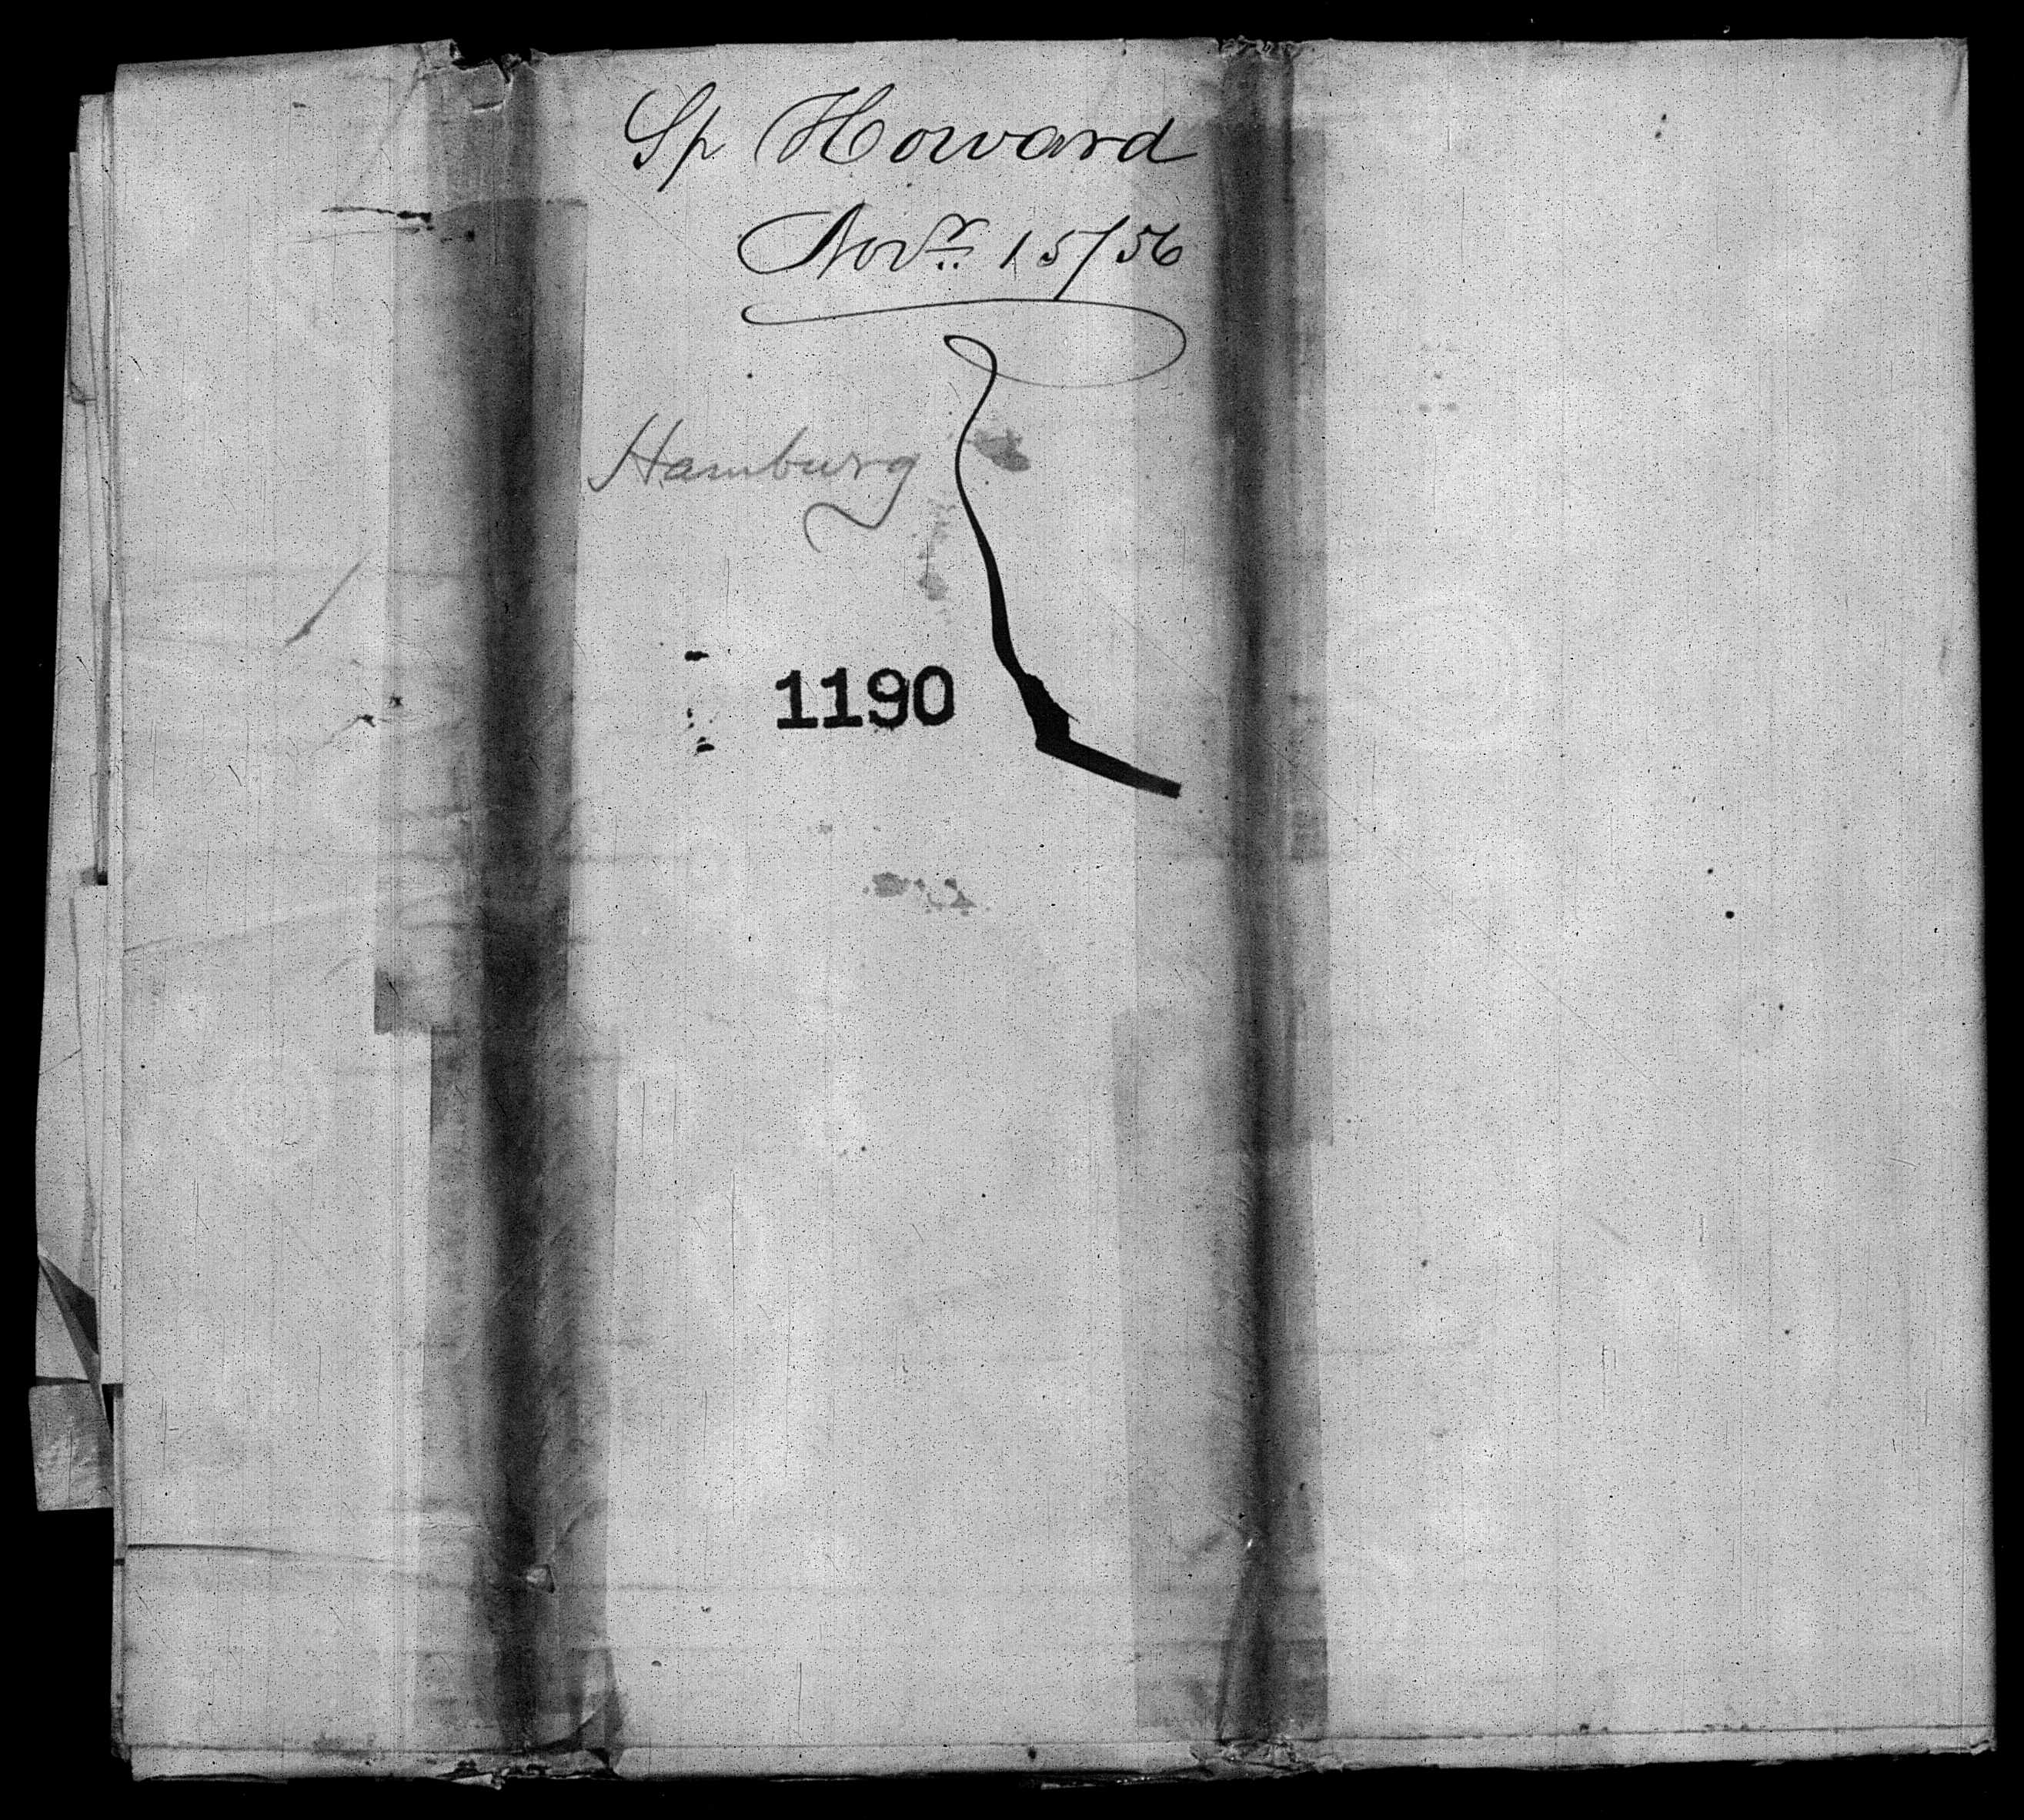 Sp Howard
Novr. 15/56
Hamburg
1190